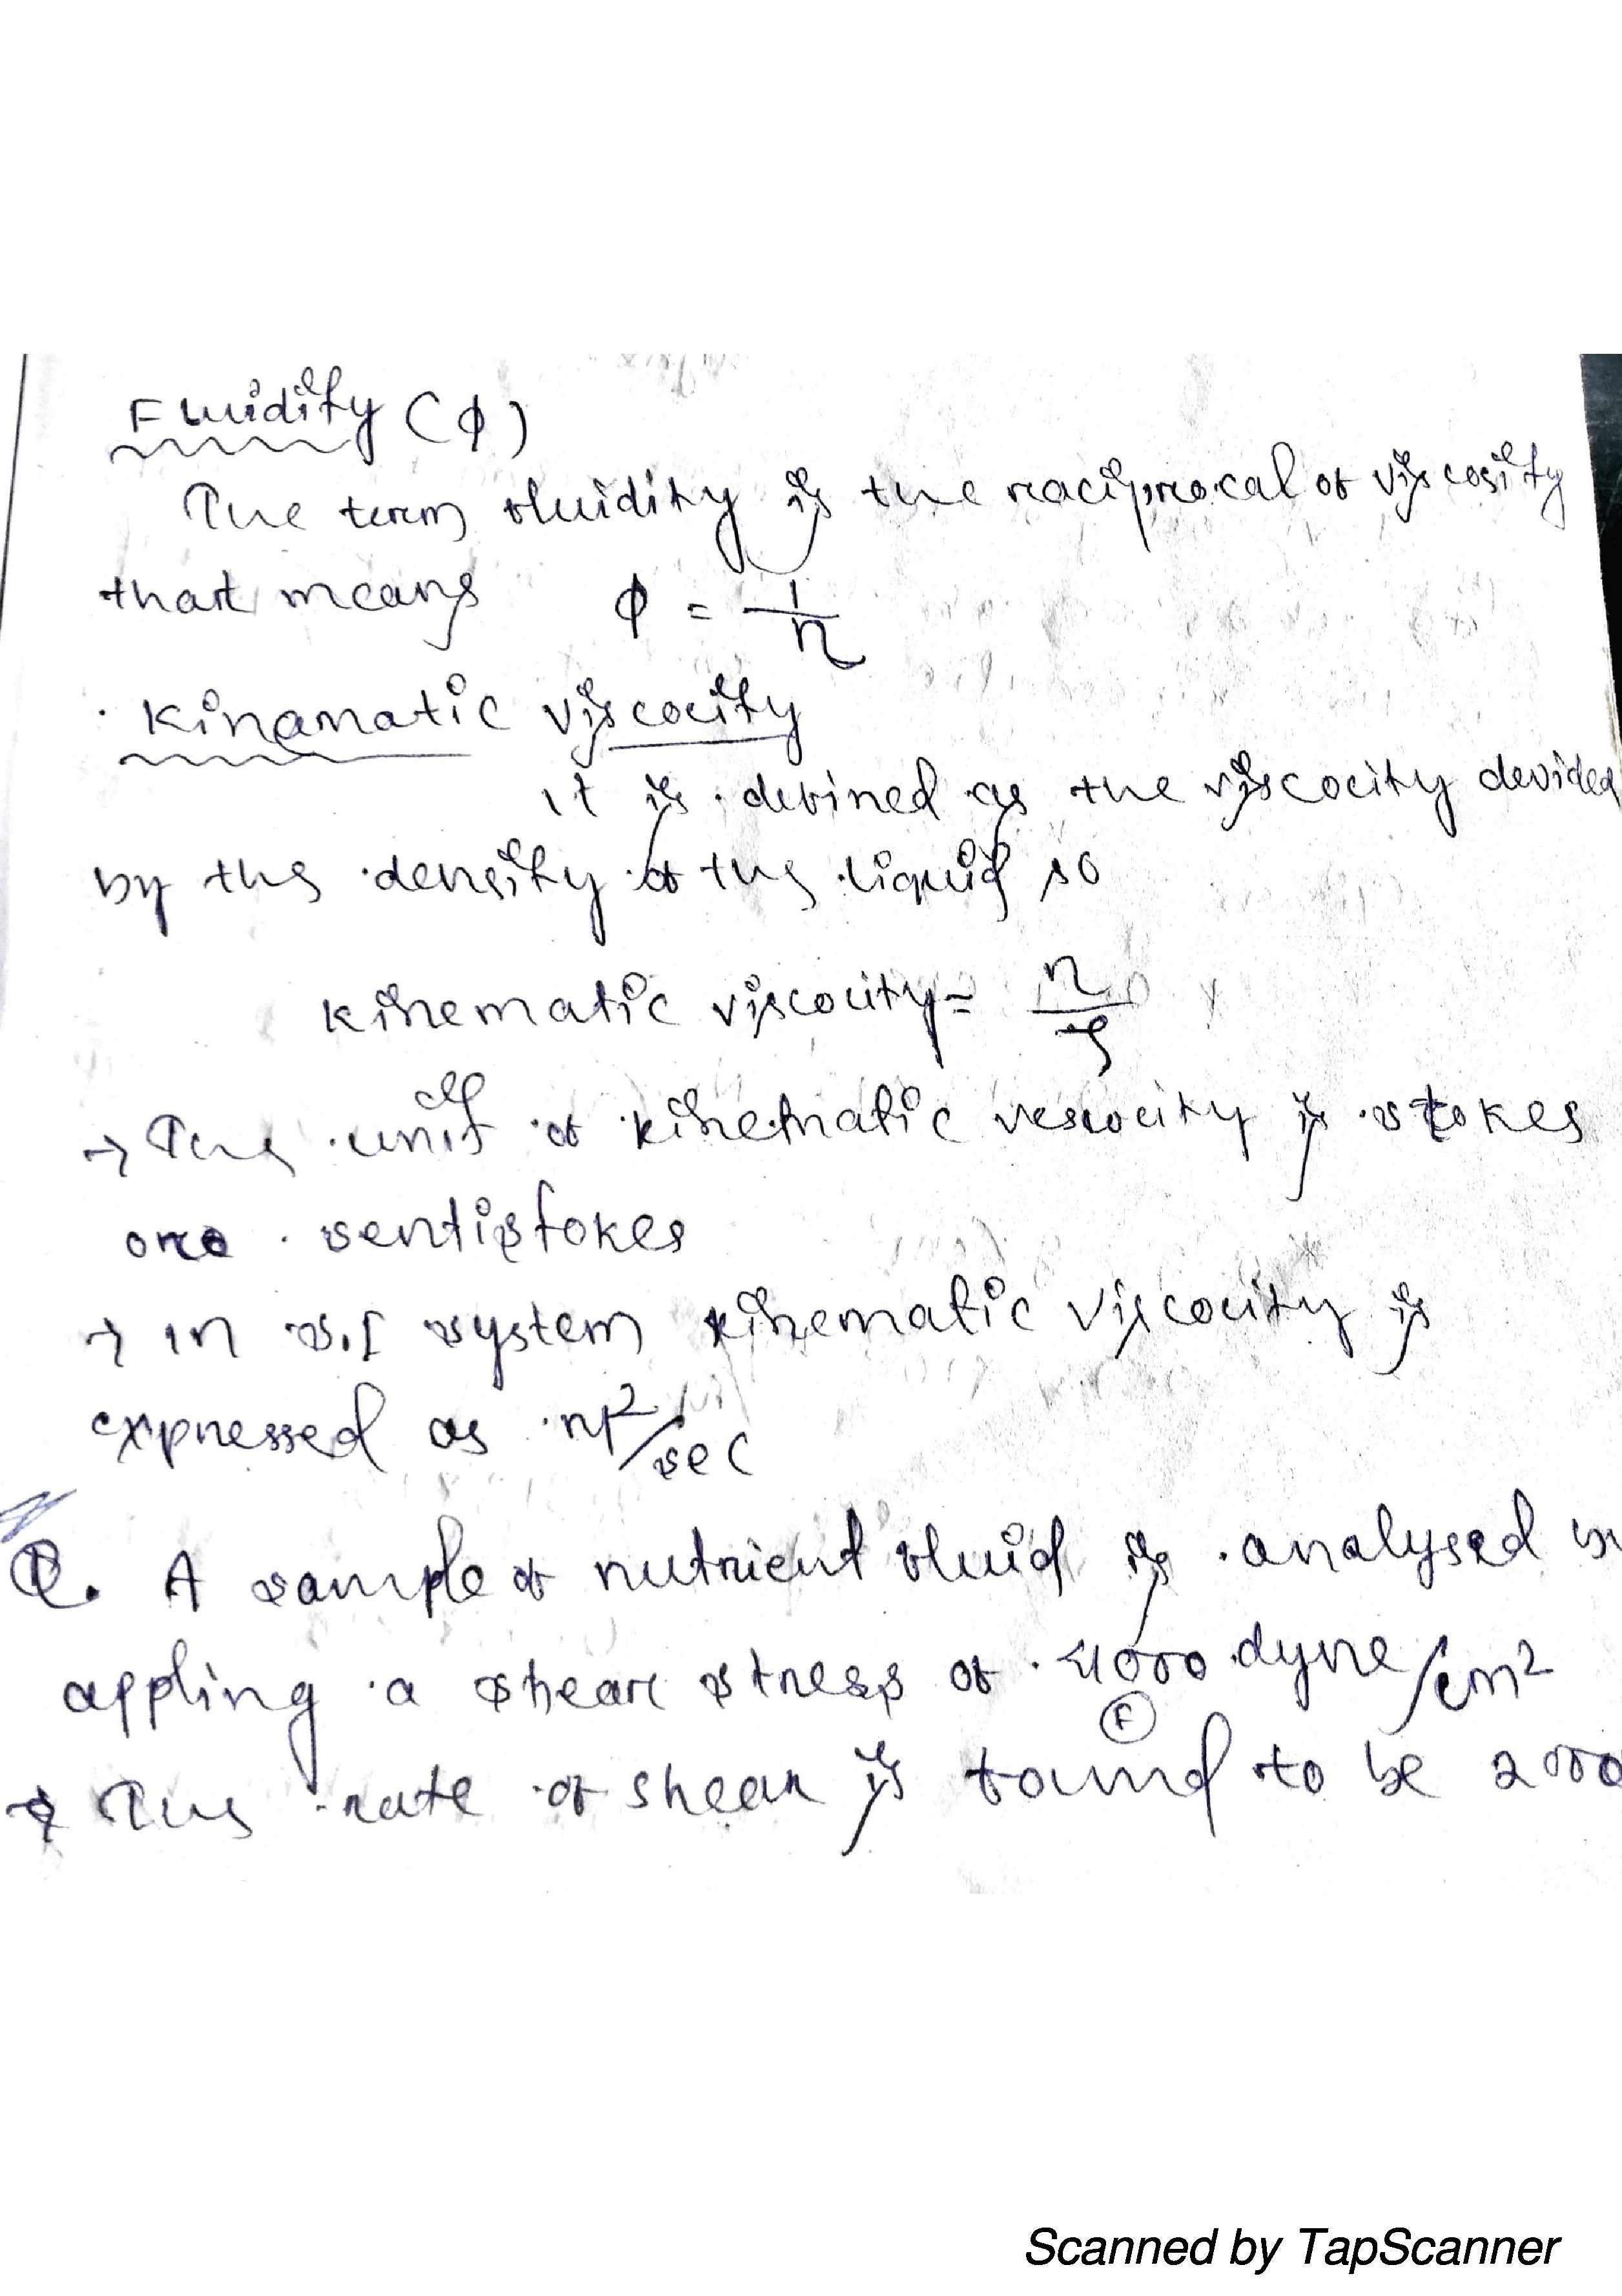 Fluidity (ϕ)
The term fluidity is the raciprocal of viscosity
that means ϕ = 1/η
· Kinamatic viscocity
It is defined as the viscocity devided
by the density of the liquid so
Kinematic viscocity = η/ρ
→ The unit of kinematic vescocity is stokes
or sentistokes
→ In S.I system kinematic viscocity is
expressed as m²/sec
Q. A sample of nutrient fluid is analysed by
appling a shear stress of 4000 dyne/cm²
(F)
→ The rate of shear is found to be 2000
Scanned by TapScanner